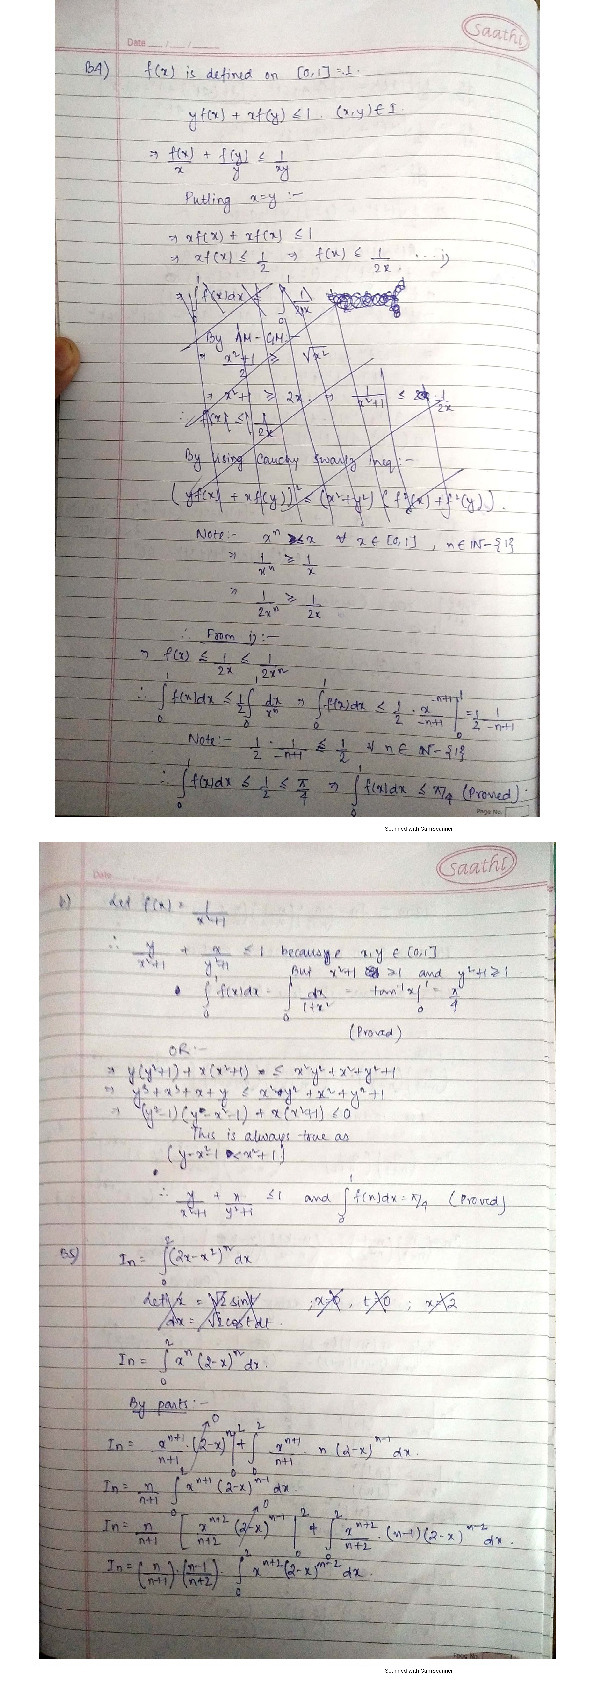 Saathi
Date ___/___/___
B4) f(x) is defined on [0,1] = I.
yf(x) + xf(y) ≤ 1 . (x,y) ∈ I
⇒ f(x)/x + f(y)/y ≤ 1/xy
Putting x=y :-
⇒ xf(x) + xf(x) ≤ 1
⇒ xf(x) ≤ 1/2 ⇒ f(x) ≤ 1/2x. ... i)
⇒ ∫₀¹ f(x)dx ≤ ∫₀¹ 1/2x
By AM-GM:-
⇒ x²+1/2 ≥ √x²
⇒ x²+1 ≥ 2x. ⇒ 1/x²+1 ≤ 1/2x
∴ f(x) ≤ 1/2x
By using Cauchy Swartz ineq:-
(yf(x) + xf(y))² ≤ (x²+y²) (f²(x) + f²(y)).
Note:- xⁿ ≤ x ∀ x ∈ [0,1] , n ∈ IN-{1}
⇒ 1/xⁿ ≥ 1/x
⇒ 1/2xⁿ ≥ 1/2x
∴ From i):-
⇒ f(x) ≤ 1/2x ≤ 1/2xⁿ
∴ ∫₀¹ f(x)dx ≤ 1/2 ∫₀¹ dx/xⁿ ⇒ ∫₀¹ f(x)dx ≤ 1/2 · x⁻ⁿ⁺¹/-n+1 |₀¹ = 1/2 · 1/-n+1
Note:- 1/2 · 1/-n+1 ≤ 1/2 ∀ n ∈ IN-{1}
∴ ∫₀¹ f(x)dx ≤ 1/2 ≤ π/4 ⇒ ∫₀¹ f(x)dx ≤ π/4 (Proved).
Page No.
Scanned with CamScanner
Saathi
Date ___/___/___
b) Let f(x) = 1/x²+1
∴ y/x²+1 + x/y²+1 ≤ 1 because x,y ∈ [0,1]
But x²+1 ≥ 1 and y²+1 ≥ 1
• ∫₀¹ f(x)dx = ∫₀¹ dx/1+x² = tan⁻¹x |₀¹ = π/4
(Proved)
OR:-
⇒ y(y²+1) + x(x²+1) ≤ x²y²+x²+y²+1
⇒ y³+x³+x+y ≤ x²y²+x²+y²+1
⇒ (y²-1)(y-x²-1) + x(x²+1) ≤ 0
This is always true as
(y-x²-1 < x²+1)
∴ y/x²+1 + x/y²+1 ≤ 1 and ∫₀¹ f(x)dx = π/4 (Proved)
B5) In = ∫₀² (2x-x²)ⁿ dx
Let x = √2 sint ; x=0, t=0 ; x=2
dx = √2 cost dt.
In = ∫₀² xⁿ (2-x)ⁿ dx.
By parts:-
In = xⁿ⁺¹/n+1 · (2-x)ⁿ |₀² + ∫₀² xⁿ⁺¹/n+1 · n (2-x)ⁿ⁻¹ dx.
In = n/n+1 ∫₀² xⁿ⁺¹ (2-x)ⁿ⁻¹ dx.
In = n/n+1 [ xⁿ⁺²/n+2 (2-x)ⁿ⁻¹ |₀² + ∫₀² xⁿ⁺²/n+2 · (n-1)(2-x)ⁿ⁻² dx.
In = (n/n+1)·(n-1/n+2) · ∫₀² xⁿ⁺² (2-x)ⁿ⁻² dx.
Page No.
Scanned with CamScanner